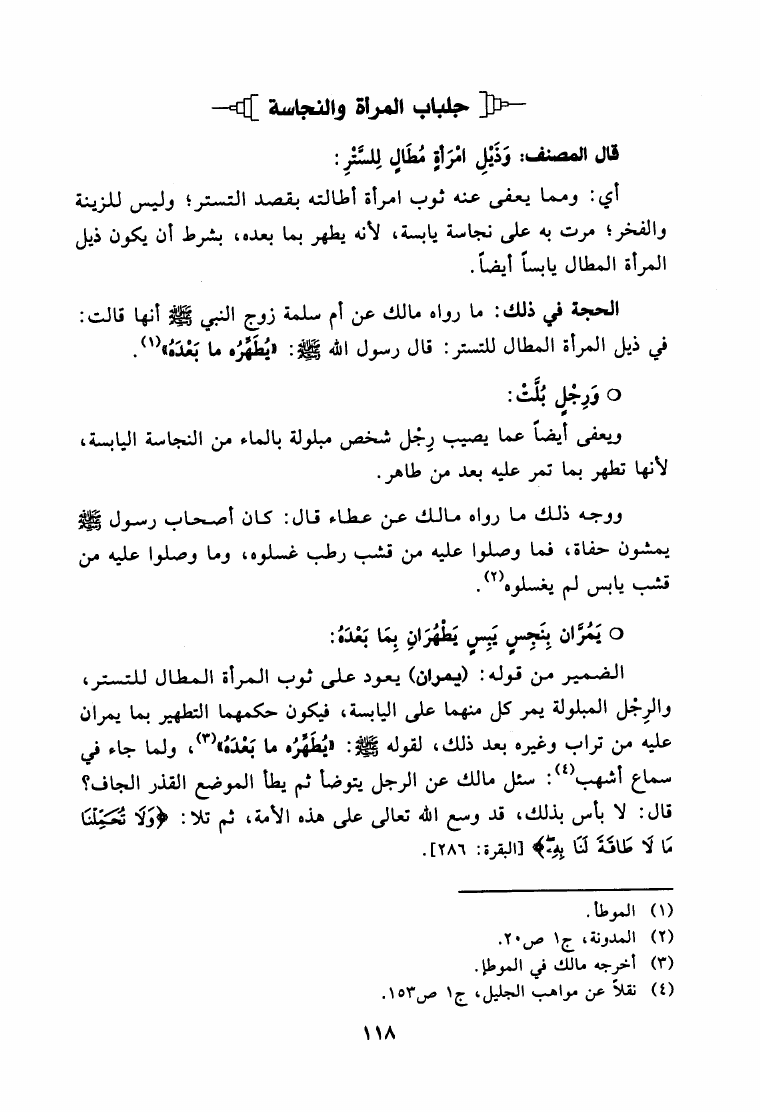 جلباب المرأة والنجاسة
قال المصنف: وَذَيْلِ امْرَأَةٍ مُطَالٍ لِلسَّتْرِ:
أي: ومما يعفى عنه ثوب امرأة أطالته بقصد التستر؛ وليس للزينة
والفخر؛ مرت به على نجاسة يابسة، لأنه يطهر بما بعده، بشرط أن يكون ذيل
المرأة المطال يابساً أيضاً.
الحجة في ذلك: ما رواه مالك عن أم سلمة زوج النبي ﷺ أنها قالت:
في ذيل المرأة المطال للتستر: قال رسول الله ﷺ: «يُطَهِّرُه ما بَعْدَهُ»(١).
○ وَرِجْلٍ بُلَّتْ:
ويعفى أيضاً عما يصيب رِجْل شخص مبلولة بالماء من النجاسة اليابسة،
لأنها تطهر بما تمر عليه بعد من طاهر.
ووجه ذلك ما رواه مالك عن عطاء قال: كان أصحاب رسول ﷺ
يمشون حفاة، فما وصلوا عليه من قشب رطب غسلوه، وما وصلوا عليه من
قشب يابس لم يغسلوه(٢).
○ يَمُرَّان بِنَجِسٍ يَبِسٍ يَطْهُرَانِ بِمَا بَعْدَهُ:
الضمير من قوله: (يمران) يعود على ثوب المرأة المطال للتستر،
والرِجْل المبلولة يمر كل منهما على اليابسة، فيكون حكمهما التطهير بما يمران
عليه من تراب وغيره بعد ذلك، لقوله ﷺ: «يُطَهِّرُه ما بَعْدَهُ»(٣)، ولما جاء في
سماع أشهب(٤): سئل مالك عن الرجل يتوضأ ثم يطأ الموضع القذر الجاف؟
قال: لا بأس بذلك، قد وسع الله تعالى على هذه الأمة، ثم تلا: ﴿وَلَا تُحَمِّلْنَا
مَا لَا طَاقَةَ لَنَا بِهِۦ﴾ [البقرة: ٢٨٦].
(١) الموطأ.
(٢) المدونة، ج١ ص٢٠.
(٣) أخرجه مالك في الموطإ.
(٤) نقلاً عن مواهب الجليل، ج١ ص١٥٣.
١١٨